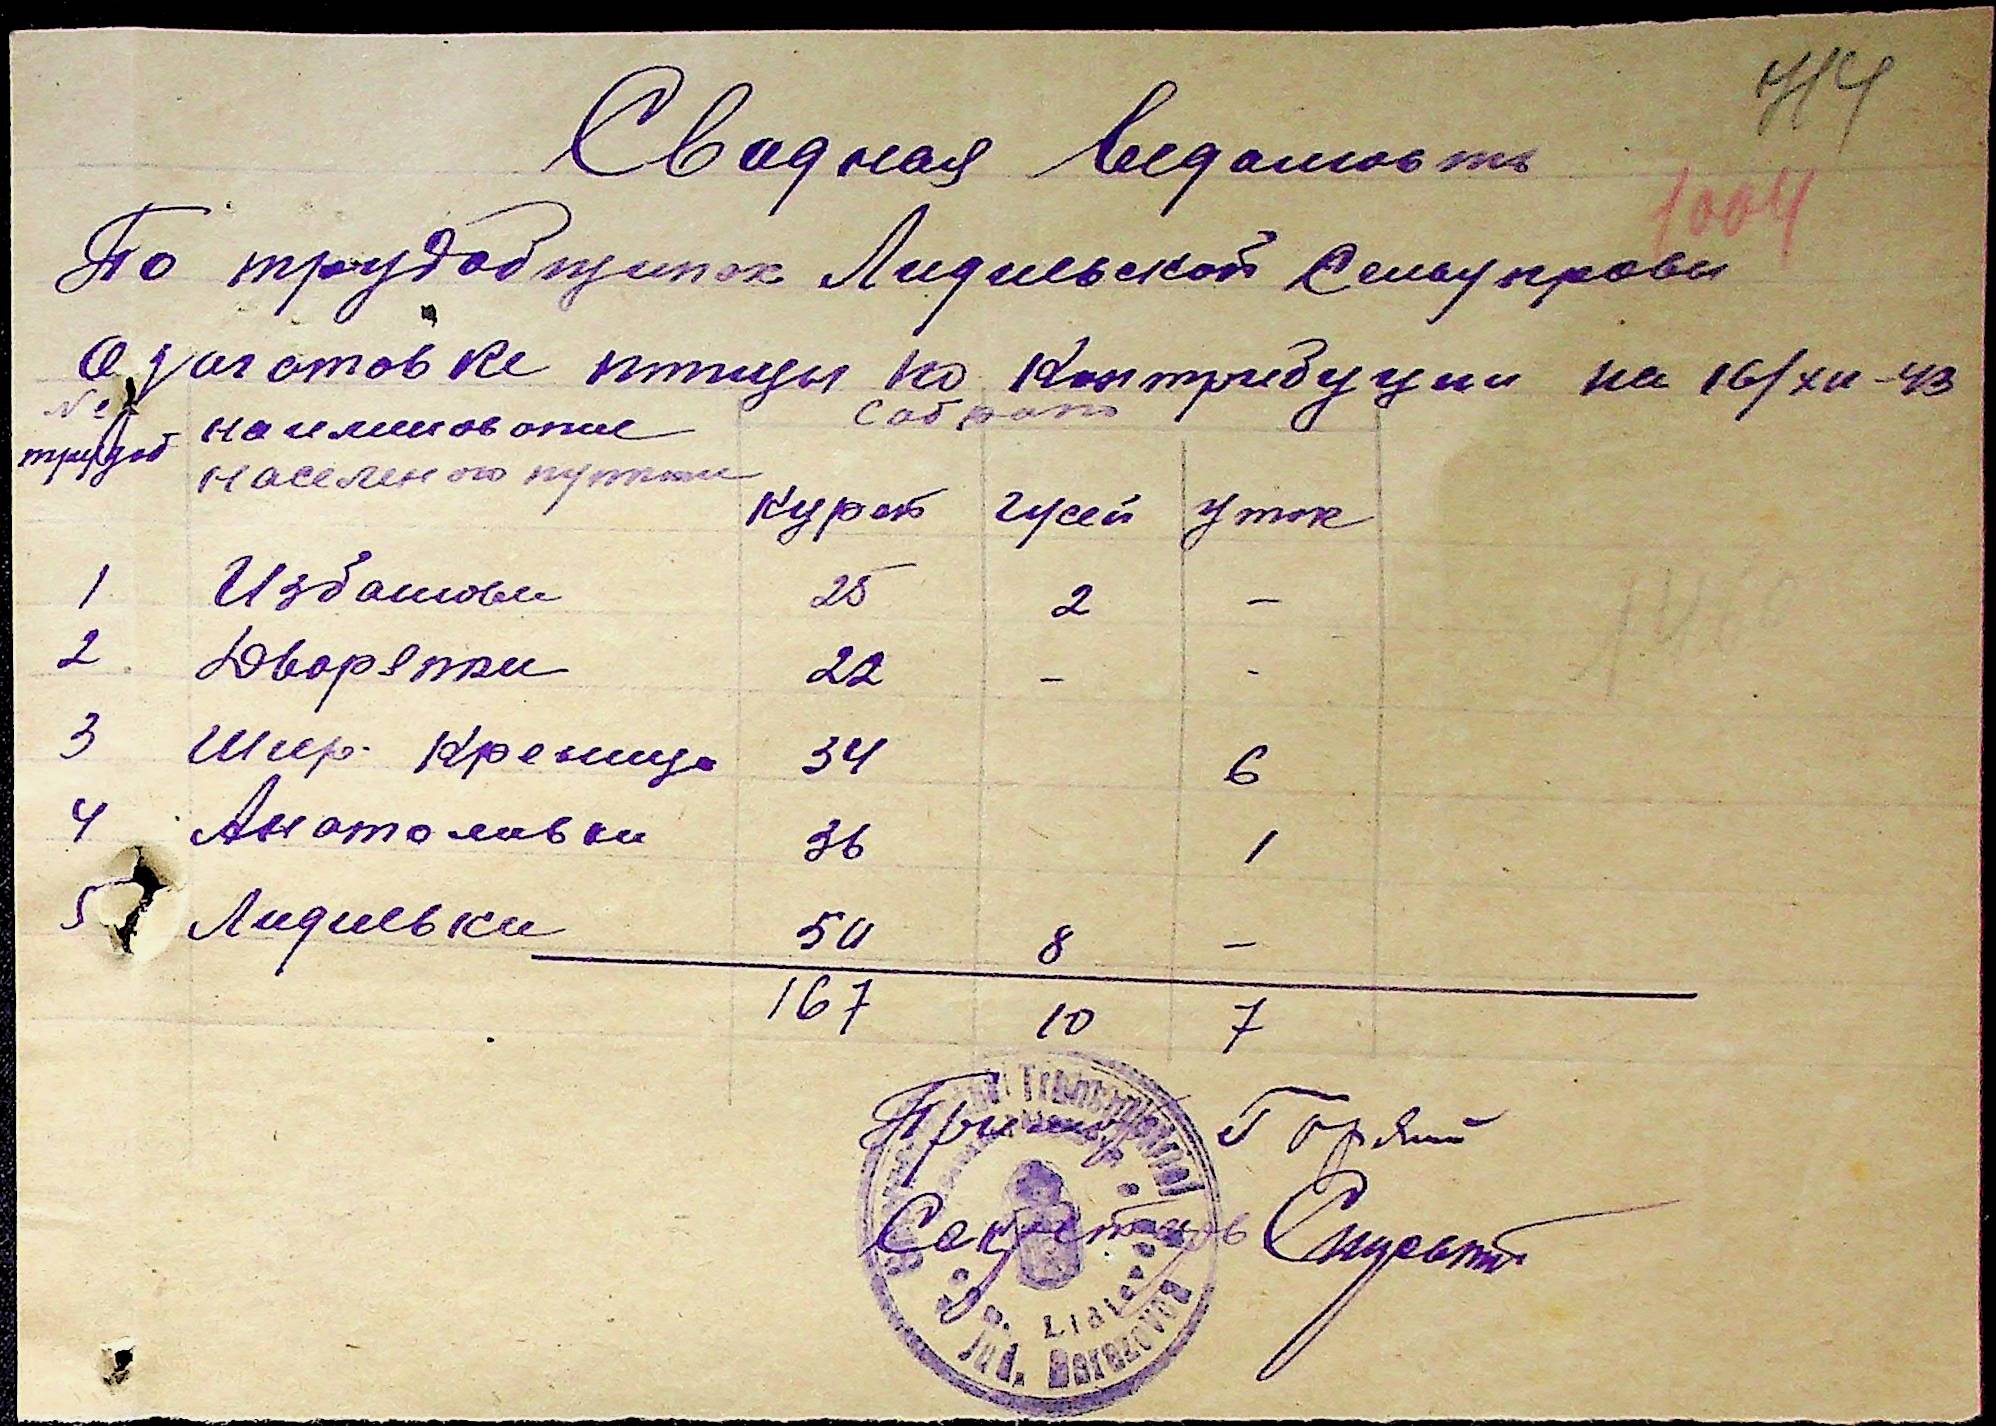 Сводная ведомость
1004
По трудобщинах Лидиевской Сельуправы
О заготовке птицы по Контрибуции на 16/XII-43
№ трудоб наименование населеного пункта Собрано
курей гусей уток
1 Избашовы 25 2 –
2 Дворянки 22 – -
3 Шир. Креница 34 6
4 Анатоливки 36 1
5 Лидиевки 50 8 –
167 10 7
Примар
Секретарь
Jud. Berezovca